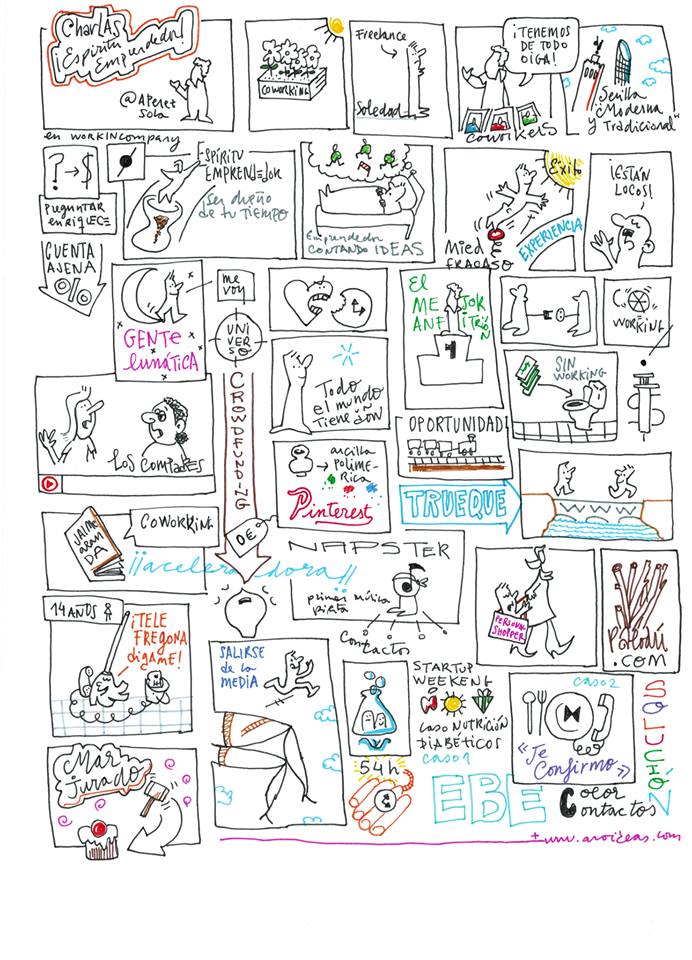 CharLAS
¡Espíritu
Emprendedor!
@APeret
Sola
en WORKINCOMPANY
COWORKING
Freelance
Soledad
¡TENEMOS
DE TODO
OIGA!
COWORKERS
Sevilla
"Moderna
y Tradicional"
? → $
PREGUNTAR
ENRIQUECE
ESPÍRITU
EMPRENDEDOR
Ser dueño
de tu TIEMPO
Emprendedor
CONTANDO IDEAS
Éxito
Miedo
FRACASO
EXPERIENCIA
¡ESTÁN
LOCOS!
CUENTA
AJENA
%
me
voy
GENTE
lunática
UNI
VER
SO
El
MEJOR
ANFITRIÓN
1
C
WORKING
$
SIN
WORKING
Todo
el mundo
Tiene DON
LOS COMPADRES
CROWDFUNDING
OPORTUNIDAD
arcilla
POLIMÉ-
RICA
Pinterest
TRUEQUE
JAIME
ARAN
DA
COWORKING
DE
¡¡aceleradora!!
NAPSTER
primer música
pirata
Contactos
PERSONAL
SHOPPER
.COM
14 AÑOS
¡TELE
FREGONA
dígame!
SALIRSE
DE LA
MEDIA
STARTUP
WEEKEND
CASO NUTRICIÓN
DIABÉTICOS
CASO 1
54h
CASO 2
«Te
Confirmo»
SOLUCIÓN
Mar
Jurado
EBE
Color
Contactos
+ www.aroideas.com